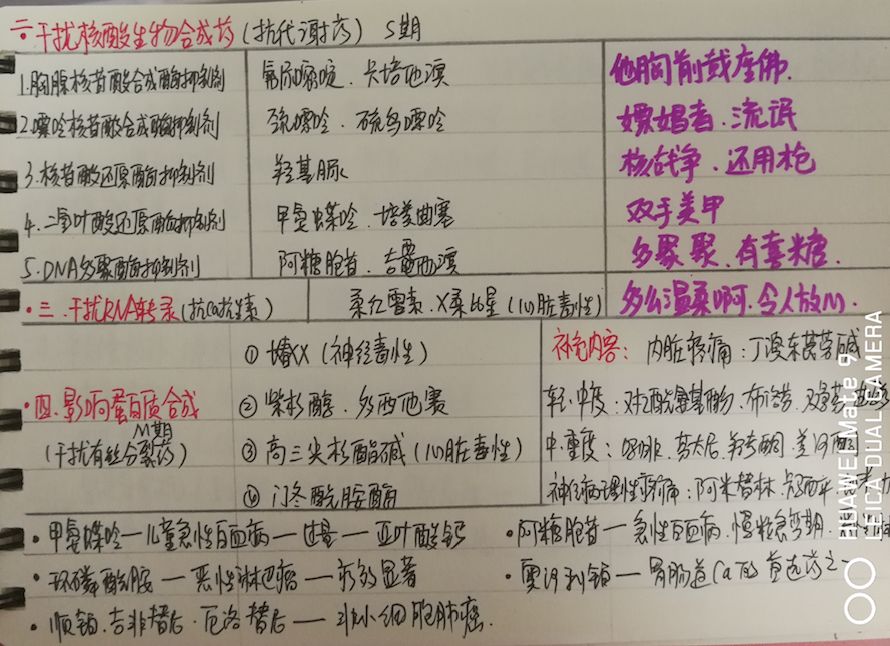 二.干扰核酸生物合成药(抗代谢药) S期
1.胸腺核苷酸合成酶抑制剂 氟尿嘧啶、卡培他滨 他胸前戴座佛.
2.嘌呤核苷酸合成酶抑制剂 巯嘌呤、硫鸟嘌呤 嫖娼者、流氓
3.核苷酸还原酶抑制剂 羟基脲 核战争、还用枪
4.二氢叶酸还原酶抑制剂 甲氨蝶呤、培美曲塞 双手美甲
5.DNA多聚酶抑制剂 阿糖胞苷、吉西他滨 多聚聚、有喜糖.
·三.干扰RNA转录(抗Ca抗生素) 柔红霉素、X柔比星(心脏毒性) 多么温柔啊、令人放心.
①长春XX(神经毒性) 补充内容: 内脏疼痛:丁溴东莨菪碱
·四.影响蛋白质合成 ②紫杉醇、多西他赛 轻.中度:对乙酰氨基酚、布洛芬、双氯芬
M期
(干扰有丝分裂药) ③高三尖杉酯碱(心脏毒性) 中.重度:吗啡、芬太尼、羟考酮、美沙酮
④门冬酰胺酶 神经病理性疼痛:阿米替林、卡马西平
·甲氨蝶呤—儿童急性白血病—过量—亚叶酸钙 ·阿糖胞苷—急性白血病、慢粒急变期
·环磷酰胺—恶性淋巴瘤—疗效显著 ·奥沙利铂—胃肠道Ca的首选药之一
·顺铂、吉非替尼、厄洛替尼—非小细胞肺癌.
HUAWEI Mate 9
LEICA DUAL CAMERA